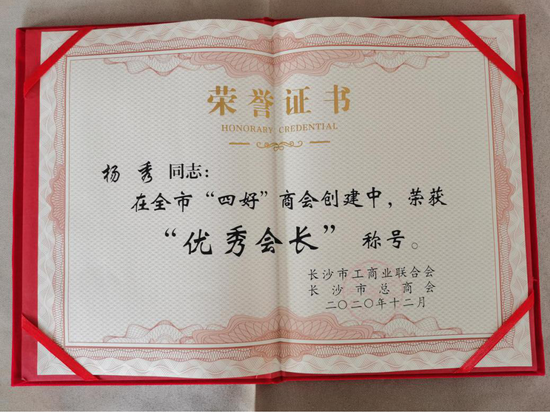 荣誉证书
HONORARY CREDENTIAL
杨秀同志：
在全市“四好”商会创建中，荣获
“优秀会长”称号。
长沙市工商业联合会
长沙市总商会
二〇二〇年十二月